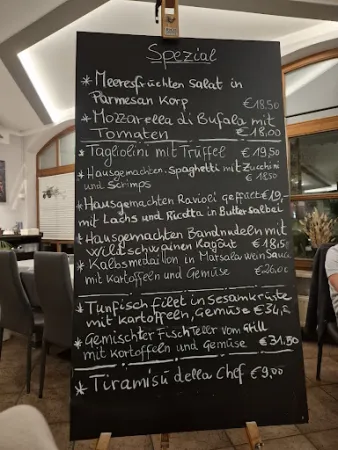 Spezial
* Meeresfrüchten Salat in
Parmesan Korp €18.50
* Mozzarella di Bufala mit
Tomaten €18,00
* Tagliolini mit Trüffel €19,50
* Hausgemachten Spaghetti mit Zucchini
und Scrimps € 18,50
* Hausgemachten Ravioli gefüllt €19,-
mit Lachs und Ricotta in Buttersalbei
* Hausgemachten Bandnudeln mit
Wildschweinen Ragout € 18,50
* Kalbsmedaillon in Marsala wein Sauce
mit Kartoffeln und Gemüse €26,00
* Tunfisch filet in Sesamkrüste
mit kartoffeln, Gemüse €34,
* Gemischter Fisch Teller vom Grill
mit Kartoffeln und Gemüse €31.50
* Tiramisú della Chef €9,00